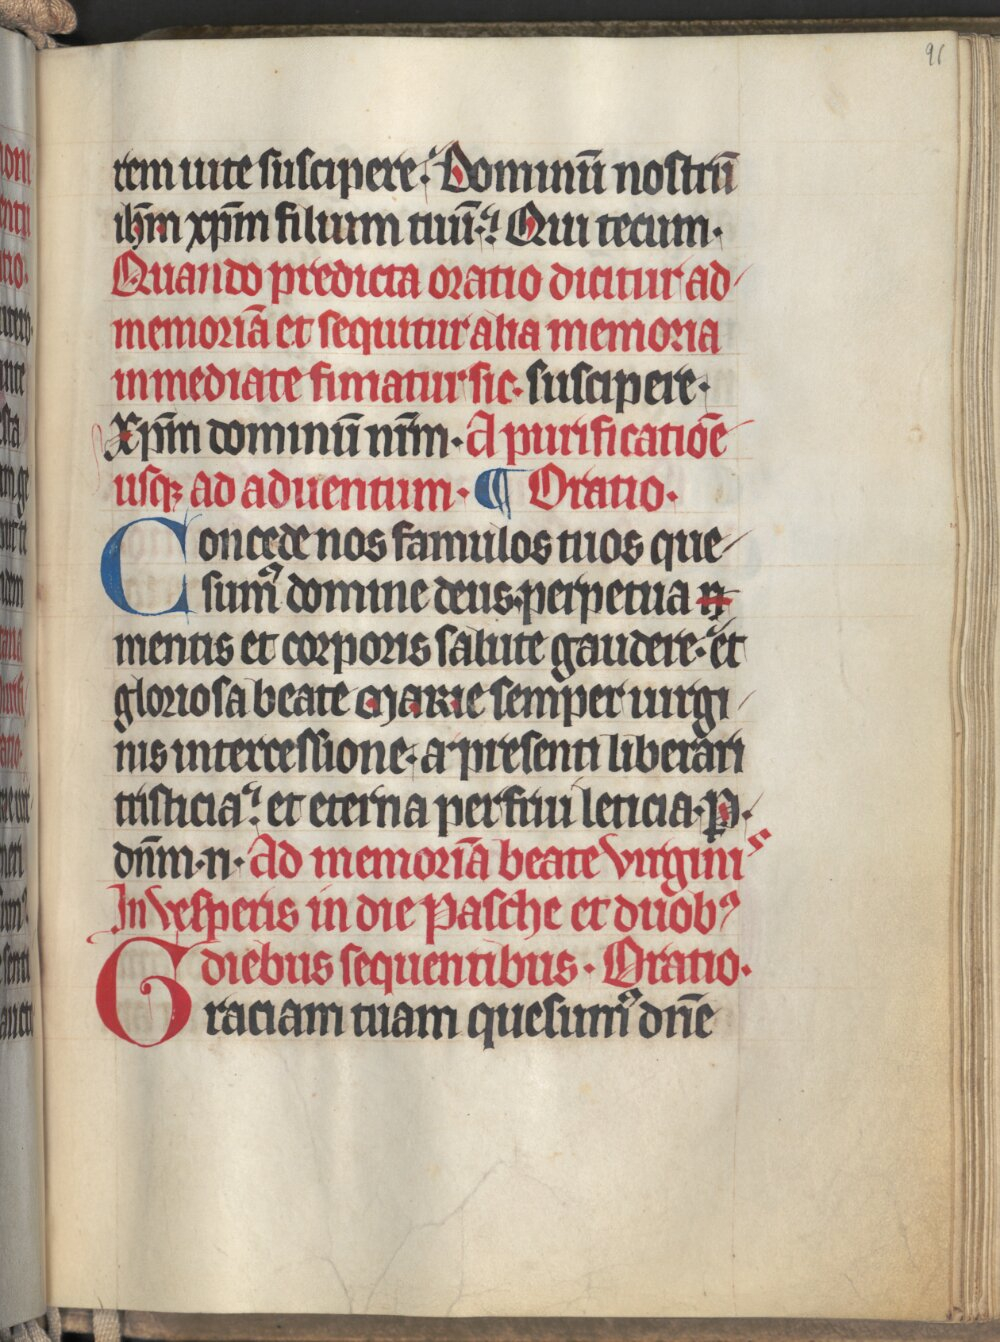 96
rem uite suscipere. Dominū nostrū
ihm̄ xpm̄ filium tuū. Qui tecum.
Quando predicta oratio dicitur ad
memoriā et sequitur alia memoria
inmediate finiatur sic. suscipere.
Xpm̄ dominū nrm̄. A purificatiōe
usqꝫ ad aduentum. ¶ Oratio.
Concede nos famulos tuos que
sumꝰ domine deus. perpetua
mentis et corporis salute gaudere. et
gloriosa beate Marie semper uirgi
nis intercessione. a presenti liberari
tristicia. et eterna perfrui leticia. P.
dnm̄. n. Ad memoriā beate virginis
In vesperis in die Pasche et duobꝰ
diebus sequentibus. Oratio.
Graciam tuam quesumꝰ dn̄e